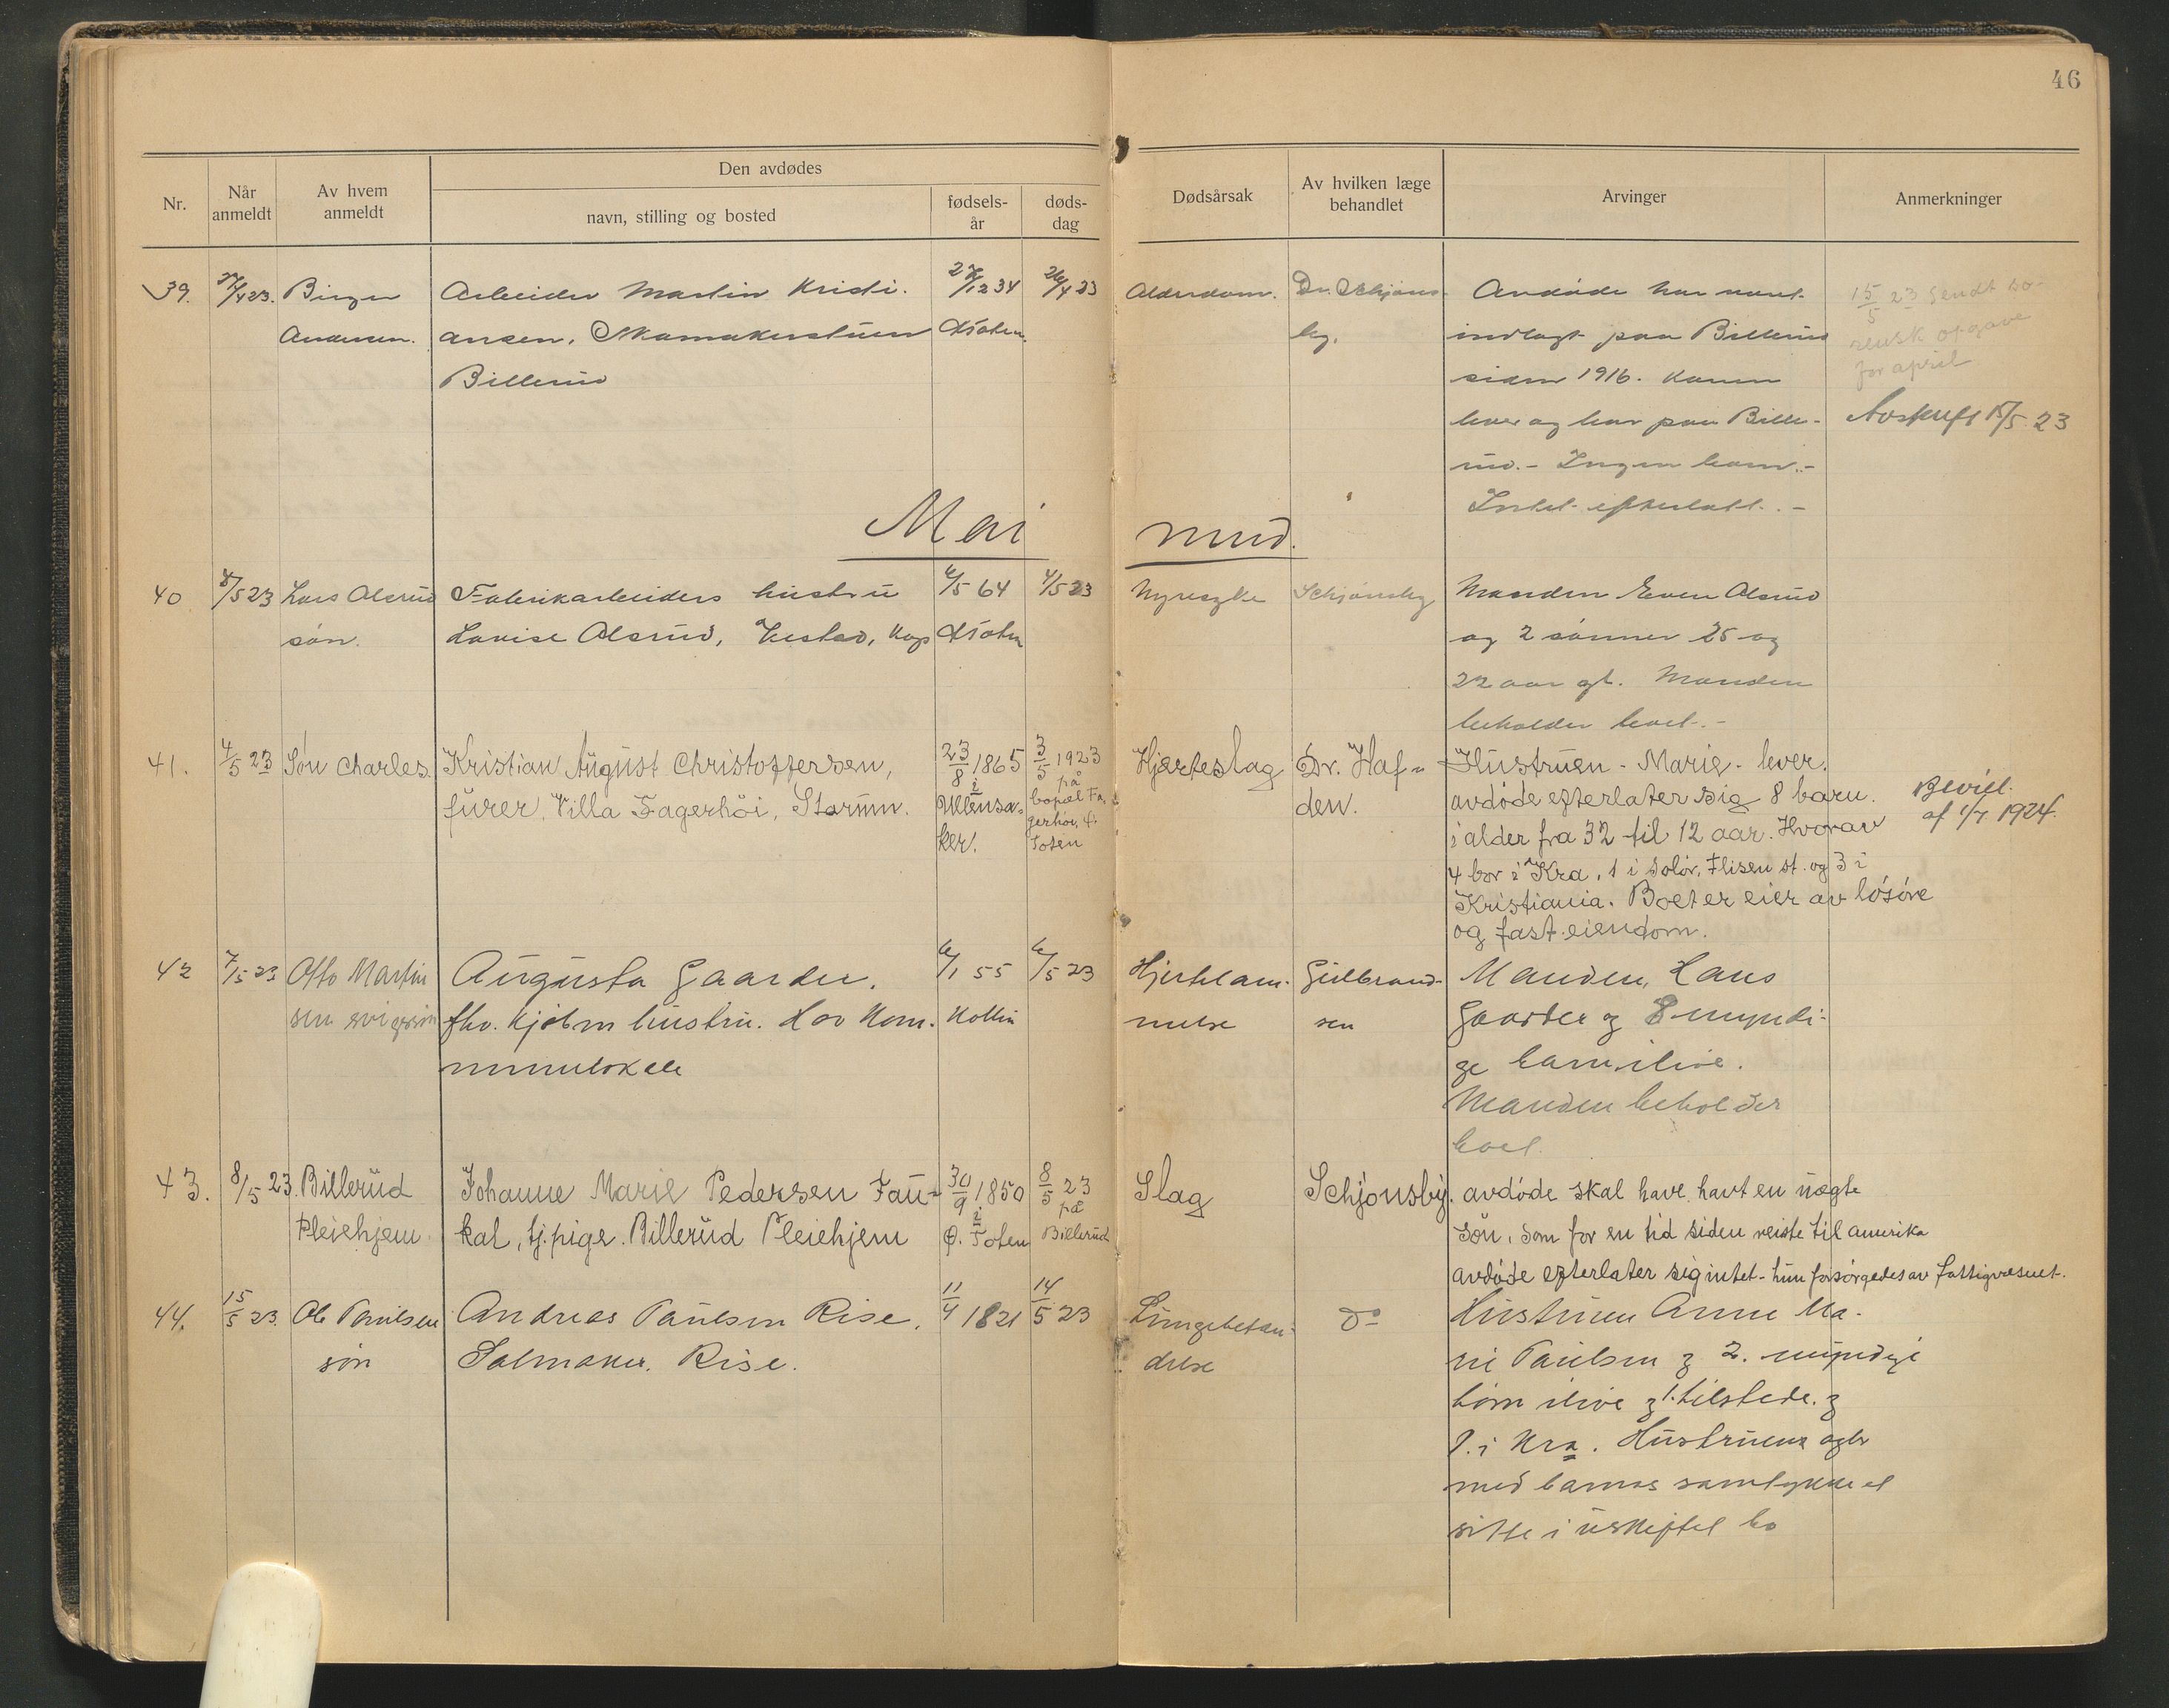 46
Nr.
Når anmeldt
Av hvem anmeldt
Den avdødes
navn, stilling og bosted
fødsels-år
døds-dag
Dødsårsak
Av hvilken læge behandlet
Arvinger
Anmerkninger
39. 27/4 23. Birger Arbeider Martin Kristi. 27/12 34 26/4 23 Alderdom. Dr. Schjøns- Avdøde har vært
Andersen. ansen, Skomakerstuen Ø Toten. by. indlagt paa Billerud
Billerud siden 1916. Konen
lever og bor paa Bille-
rud. - Ingen barn. -
Intet efterlatt. -
15/5 23 sendt so-
rensk opgave
for april
Avskrift 15/5 23
Mai mnd.
40 8/5 23 Lars Alsrud Fabrikarbeiders hustru 6/5 64 4/5 23 Nyresyke Schjønsby Manden Even Alsrud
søn. Lovise Alsrud, Kap Ø Toten og 2 sønner 25 og
22 aar gl. Manden
beholder boet. -
41. 4/5 23 Søn Charles. Kristian August Christoffersen, 23/8 1865 3/5 1923 Hjerteslag Dr. Haf- Hustruen - Marie - lever.
furer, Villa Fagerhöi, Starum. i Ullensa- på bopæl Fa- den. avdøde efterlater sig 8 barn.
ker. gerhöi, Ø. Toten i alder fra 32 til 12 aar. Hvorav
4 bor i Kra, 1 i Solør, Flisen st. og 3 i
Kristiania. Boet er eier av løsøre
og fast eiendom.
Bevill.
af 1/7 1924.
42 7/5 23 Otto Martin Augusta Gaarder. 6/1 55 6/5 23 Hjertelam- Gulbrand- Manden, Hans
sen svigersøn fhv. kjøbm hustru. Hov Kom- Kolbu melse sen Gaarder og 8 myndi-
munelokale ge barn ilive.
Manden beholder
boet.
43. 8/5 23. Billerud Johanne Marie Pedersen Fau- 30/9 1850 8/5 23 Slag Schjønsby. avdøde skal have havt en uægte
Pleiehjem kal, tj.pige. Billerud Pleiehjem i Ø. Toten på Billerud Søn, som for en tid siden reiste til amerika
avdøde efterlater sig intet - hun forsørgedes av fattigvæsnet.
44. 15/5 23. Ole Paulsen Andreas Paulsen Rise. 11/4 1821 14/5 23 Lungebetæn- do Hustruen Anne Ma-
søn Salmaker. Rise. delse rie Paulsen og 2. myndige
børn ilive og 1. tilstede. og
1. i Kra. Hustruen agter
med barnas samtykke at
sitte i uskiftet bo